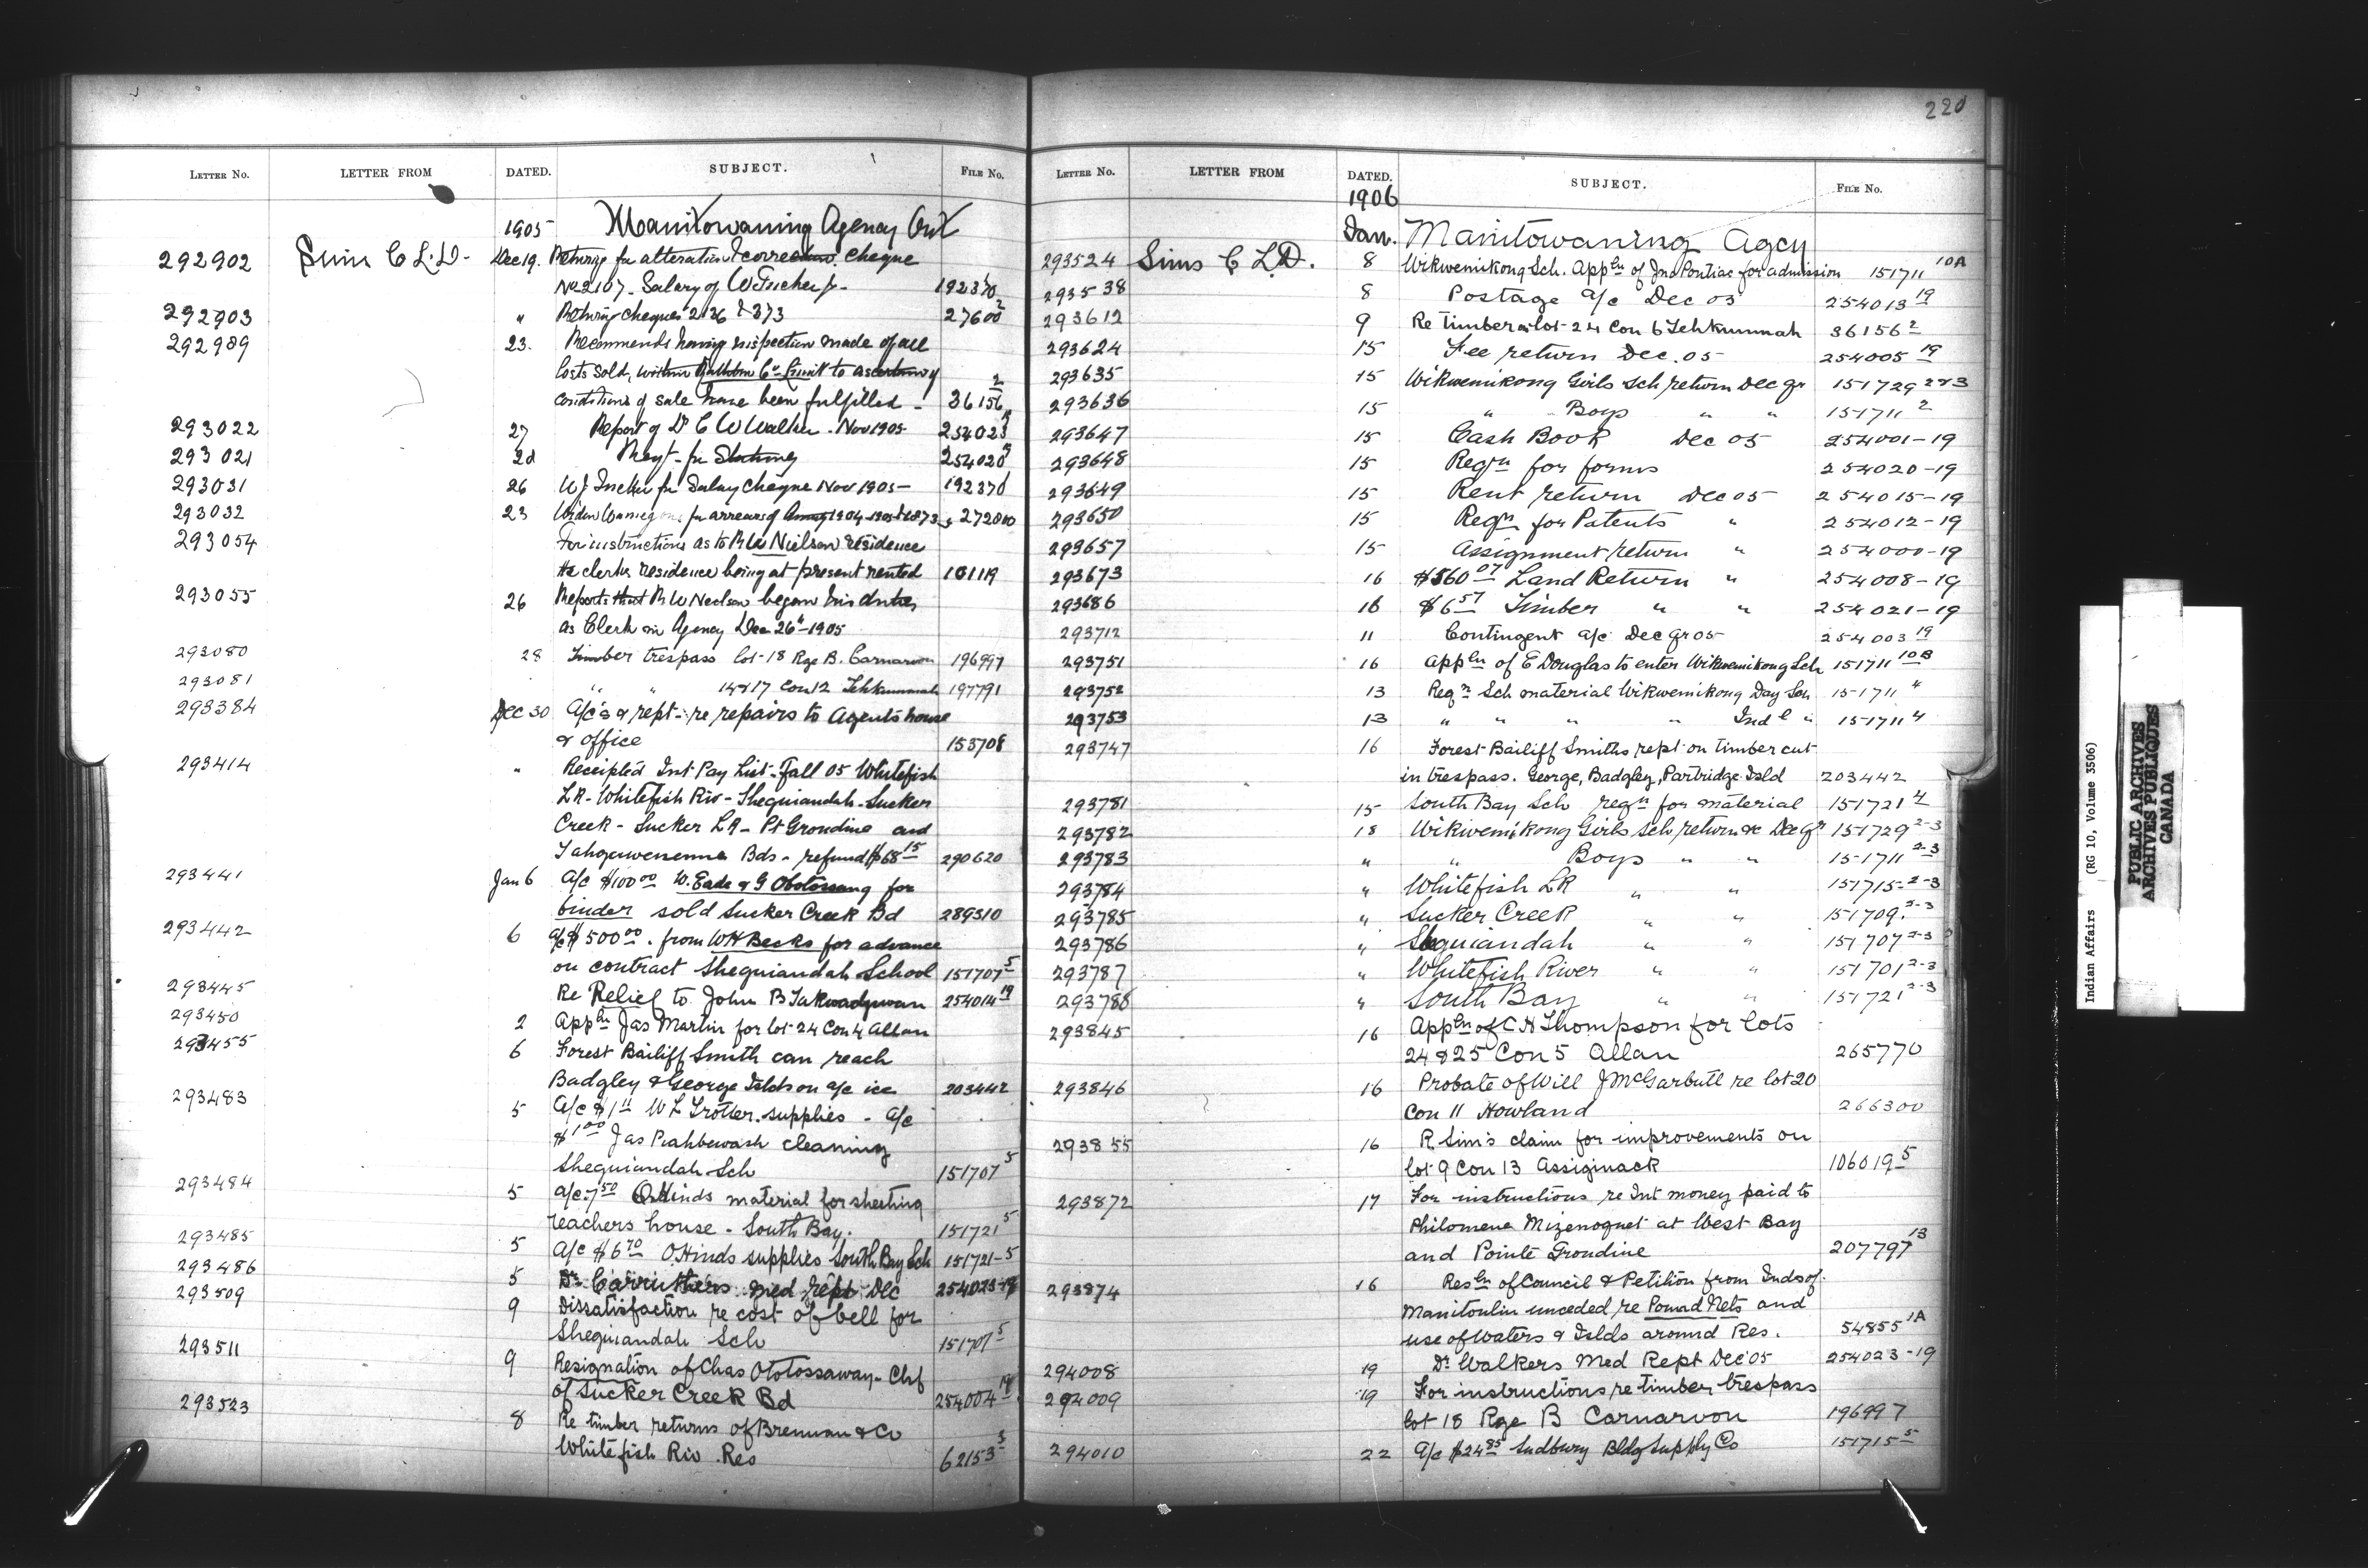 220
LETTER NO. LETTER FROM DATED. SUBJECT. FILE No.
1905 Manitowaning Agency Ont
292902 Sims C L. D- Dec 19. Returng for alteration & correction cheque
No 2107. Salary of W Tucker Jr- 192370
292903 " Returng cheques 2136 & 373 27600 2
292989 23. Recommends having inspection made of all
lots sold, within Co's Limit to ascertain if
conditions of sale have been fulfilled - 36156 2
293022 27 Report of Dr C W Walker. Nov 1905 254023 19
293021 2d Reqt- for Stationery 254020 19
293031 26 W J Tucker for Salary cheque Nov 1905- 192370
293032 23 Widow for arrears of Annuity 1904-1905 272000
293054 For instructions as to Mr Nielson residence
the clerks residence being at present rented 101119
293055 26 Reports that R W Neelson began his duties
as Clerk in Agency Dec 26"-1905
293080 28 Timber trespass lot-18 Rge B. Carnarvon 196997
293081 " " 14&17 Con 12 Tehkummah 197791
293384 Dec 30 A/c's & rept- re repairs to Agents house
& office 153708
293414 " Receipted Int Pay List- Fall 05 Whitefish
LR- Whitefish Riv- Sheguiandah- Sucker
Creek- Sucker LR- Pt Grondine and
Tahgaiwenenne Bds- refund $68 15 290620
293441 Jan 6 A/c $100 00 W. Eade & G Obotossang for
binder sold Sucker Creek Bd 289310
293442 6 a/c $500 00. from W H Becks for advance
on contract Sheguiandah School 151707 5
293445 Re Relief to John B Takwadgewan 254014 19
293450 2 Appln Jas Martin for lot-24 Con 4 Allan
293455 6 Forest Bailiff Smith can reach
Badgley & George Islds on a/c ice 203442
293483 5 A/c $1 11 W L Trotter. supplies - a/c
$1 00 Jas Pahbewash cleaning
Sheguiandah Sch 151707 5
293484 5 a/c 7 50 O Hinds material for sheeting
teachers house - South Bay. 151721 5
293485 5 A/c $6 70 O Hinds supplies South Bay Sch 151721-5
293486 5 Dr Carruthers med rept Dec 254023-19
293509 9 Dissatisfaction re cost of bell for
Sheguiandah Sch 151707 5
293511 9 Resignation of Chas Obotossaway- Chf
of Sucker Creek Bd 254004 19
293523 8 Re timber returns of Brennan & Co
Whitefish Riv. Res 62153 3
LETTER NO. LETTER FROM DATED. SUBJECT. FILE No.
1906
Jan. Manitowaning Agcy
293524 Sims C L. D. 8 Wikwemikong Sch. Appln of Jno Pontiac for admission 151711 10A
293538 8 Postage a/c Dec 05 254013 19
293612 9 Re timber on lot-24 Con 6 Tehkummah 36156 2
293624 15 Fee return Dec. 05 254005 19
293635 15 Wikwemikong Girls Sch return Dec qr 151729 2&3
293636 15 " Boys " " 151711 2
293647 15 Cash Book Dec 05 254001-19
293648 15 Reqn for forms 254020-19
293649 15 Rent return Dec 05 254015-19
293650 15 Reqn for Patents " 254012-19
293657 15 Assignment return " 254000-19
293673 16 $560 07 Land Return " 254008-19
293686 16 $6 57 Timber " " 254021-19
293712 11 Contingent a/c Dec qr 05 254003 19
293751 16 Appln of E Douglas to enter Wikwemikong Sch 151711 10B
293752 13 Reqn Sch material Wikwemikong Day Sch 151711 4
293753 13 " " " " Indl " 151711 4
293747 16 Forest Bailiff Smiths rept on timber cut
in trespass. George, Badgley, Partridge Isld 203442
293781 15 South Bay Sch reqn for material 151721 4
293782 18 Wikwemikong Girls Sch return &c Dec qr 151729 2-3
293783 " " Boys " " 151711 2-3
293784 " Whitefish LR " " 151715-2-3
293785 " Sucker Creek " " 151709. 2-3
293786 " Sheguiandah " " 151707 2-3
293787 " Whitefish River " " 151701 2-3
293788 " South Bay " " 151721 2-3
293845 16 Appln of C H Thompson for lots
24 & 25 Con 5 Allan 265770
293846 16 Probate of Will J McGarbutt re lot 20
Con 11 Howland 266300
293855 16 R. Sim's claim for improvements on
lot 9 Con 13 Assiginack 106019 5
293872 17 For instructions re Int money paid to
Philomene Mizenoquet at West Bay
and Pointe Grondine 207797 13
293874 16 Resln of Council & Petition from Inds of
Manitoulin unceded re Pound Nets and
use of Waters & Islds around Res. 54855 1A
294008 19 Dr Walkers Med Rept Dec 05 254023-19
294009 19 For instructions re timber trespass
lot 18 Rge B Carnarvon 196997
294010 22 a/c $24 85 Sudbury Bldg Supply Co 151715 5
Indian Affairs (RG 10, Volume 3506)
PUBLIC ARCHIVES
ARCHIVES PUBLIQUES
CANADA